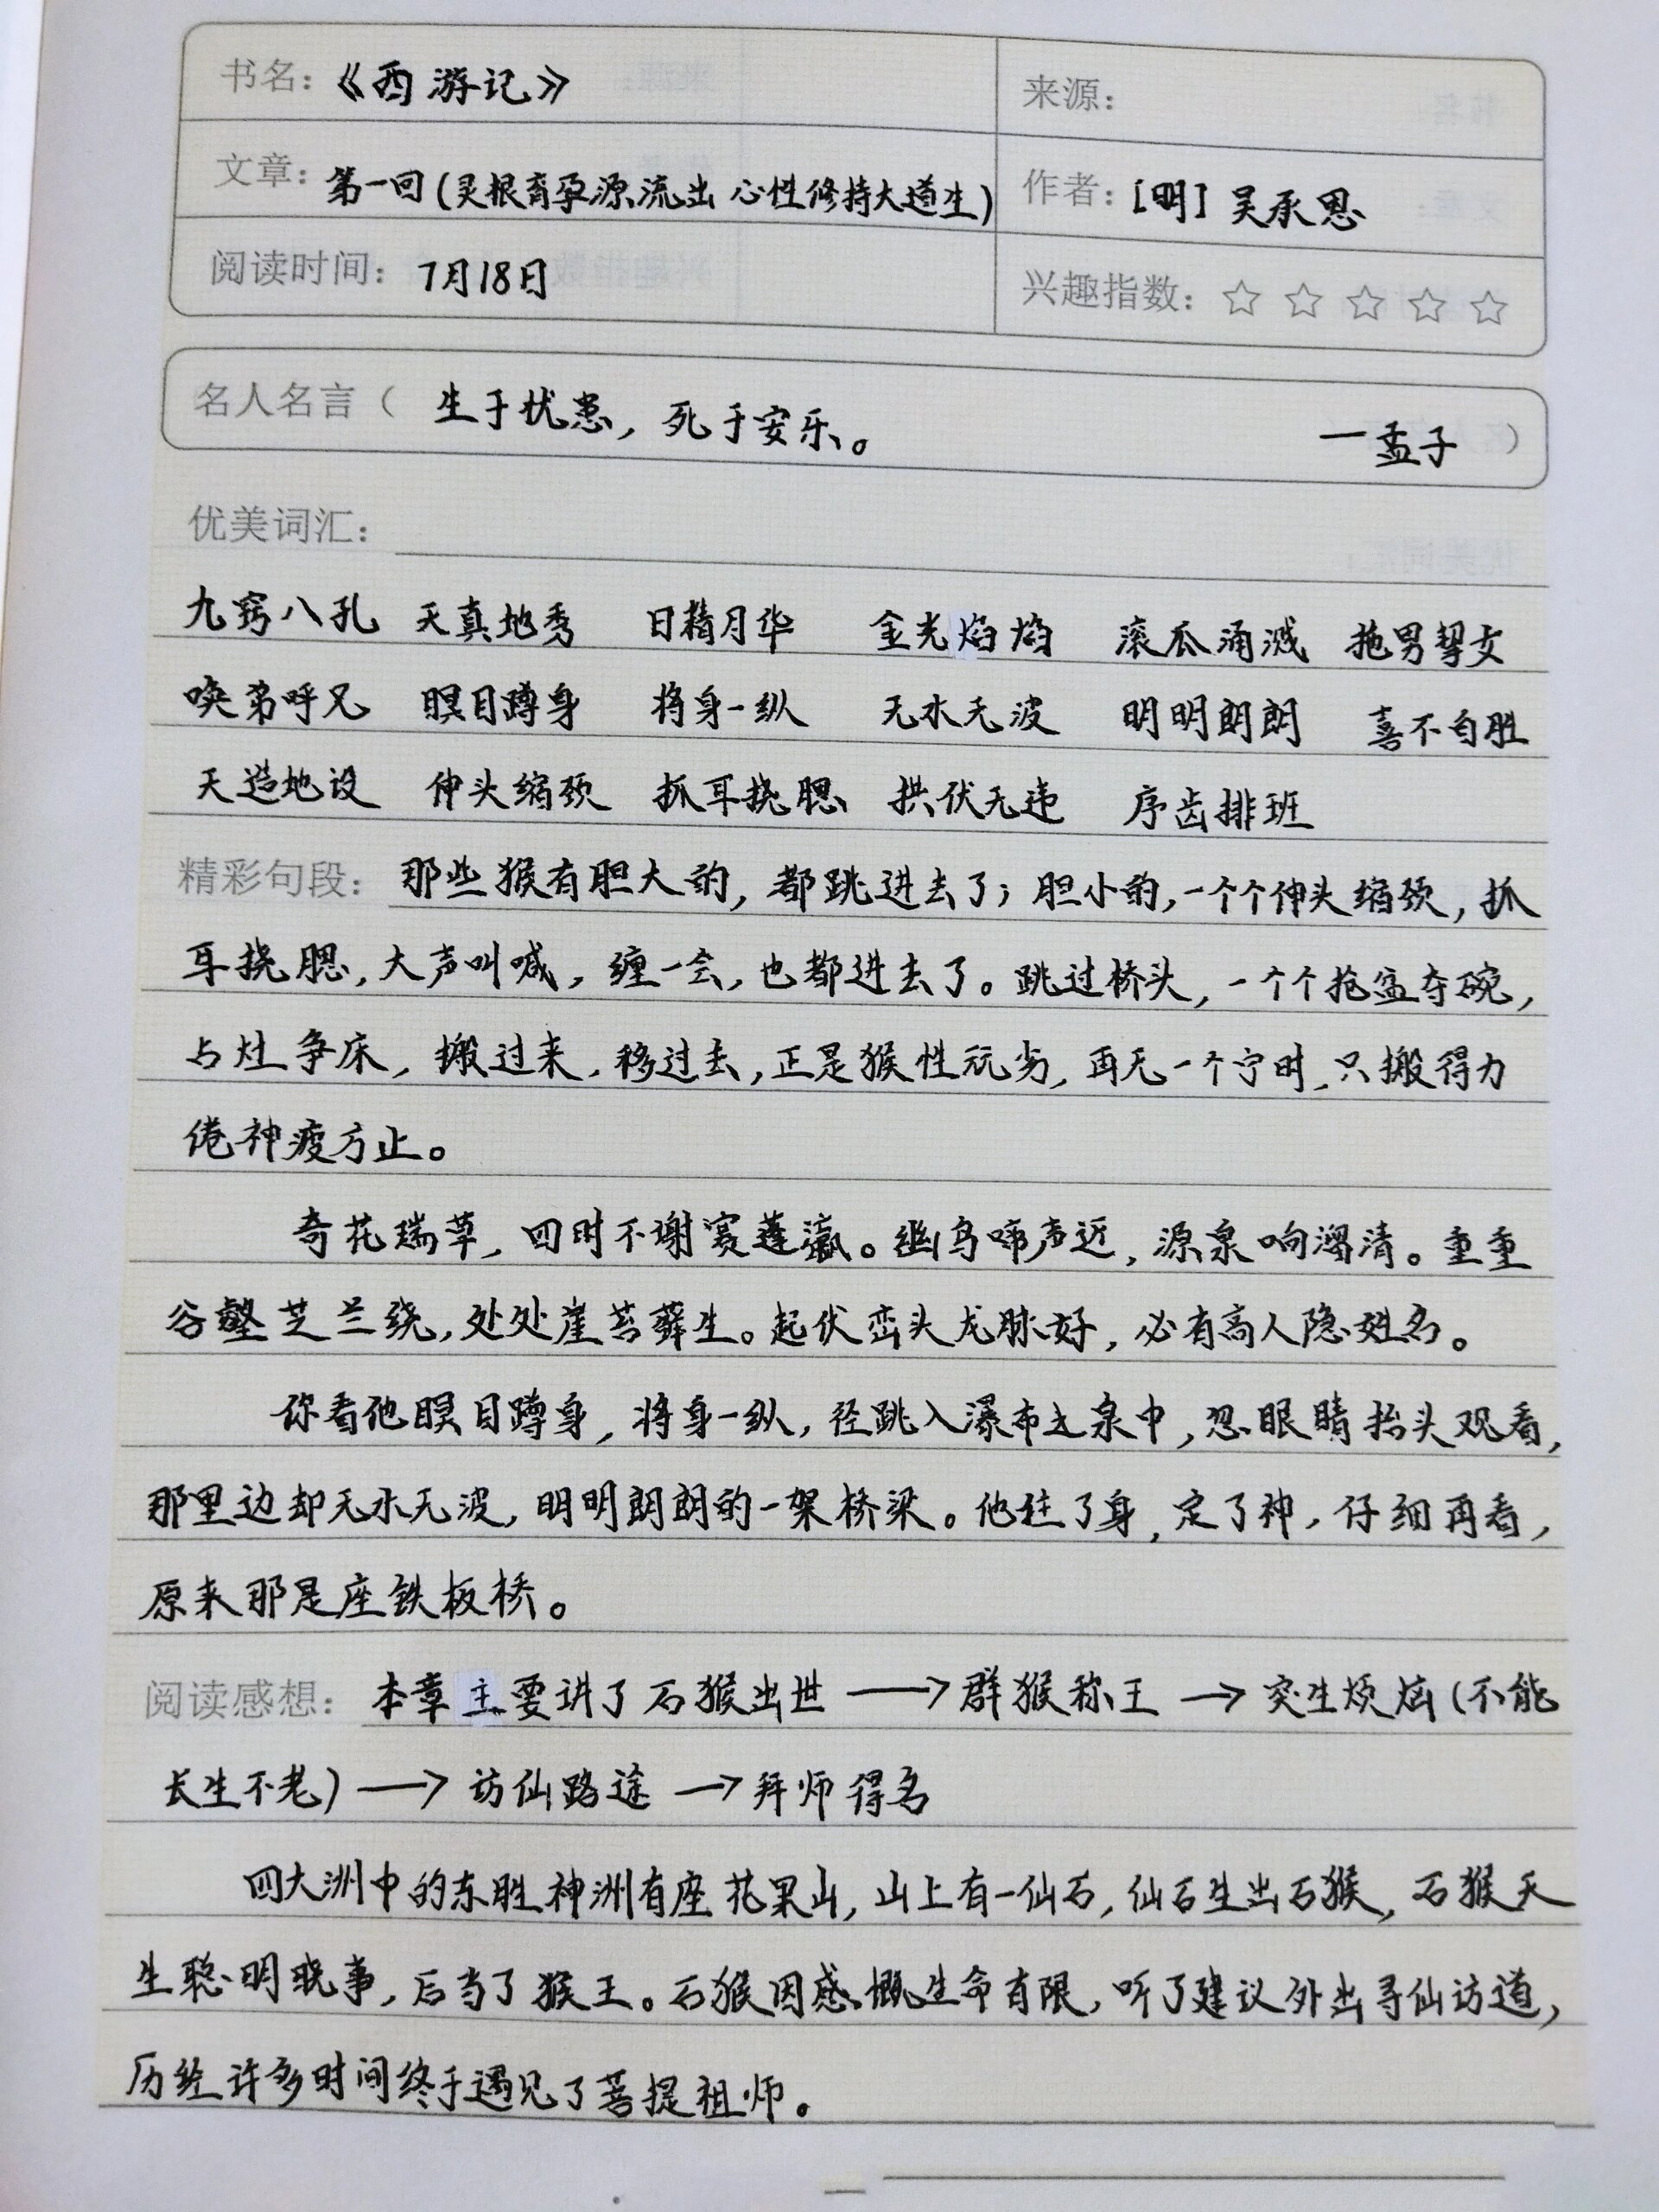 书名：《西游记》 来源：
文章：第一回(灵根育孕源流出 心性修持大道生) 作者：[明] 吴承恩
阅读时间：7月18日 兴趣指数：☆☆☆☆☆
名人名言（ 生于忧患，死于安乐。 —孟子 ）
优美词汇：
九窍八孔 天真地秀 日精月华 金光焰焰 滚瓜涌溅 拖男挈女
唤弟呼兄 瞑目蹲身 将身一纵 无水无波 明明朗朗 喜不自胜
天造地设 伸头缩颈 抓耳挠腮 拱伏无违 序齿排班
精彩句段：那些猴有胆大的，都跳进去了；胆小的，一个个伸头缩颈，抓
耳挠腮，大声叫喊，缠一会，也都进去了。跳过桥头，一个个抢盆夺碗，
占灶争床，搬过来，移过去，正是猴性玩劣，再无一个宁时，只搬得力
倦神疲方止。
奇花瑞草，四时不谢赛蓬瀛。幽鸟啼声近，源泉响溜清。重重
谷壑芝兰绕，处处崖苔藓生。起伏峦头龙脉好，必有高人隐姓名。
你看他瞑目蹲身，将身一纵，径跳入瀑布之泉中，忽眼睛抬头观看，
那里边却无水无波，明明朗朗的一架桥梁。他住了身，定了神，仔细再看，
原来那是座铁板桥。
阅读感想：本章主要讲了石猴出世 → 群猴称王 → 突生烦恼(不能
长生不老) → 访仙路途 → 拜师得名
四大洲中的东胜神洲有座花果山，山上有一仙石，仙石生出石猴，石猴天
生聪明晓事，后当了猴王。石猴因感慨生命有限，听了建议外出寻仙访道，
历经许多时间终于遇见了菩提祖师。